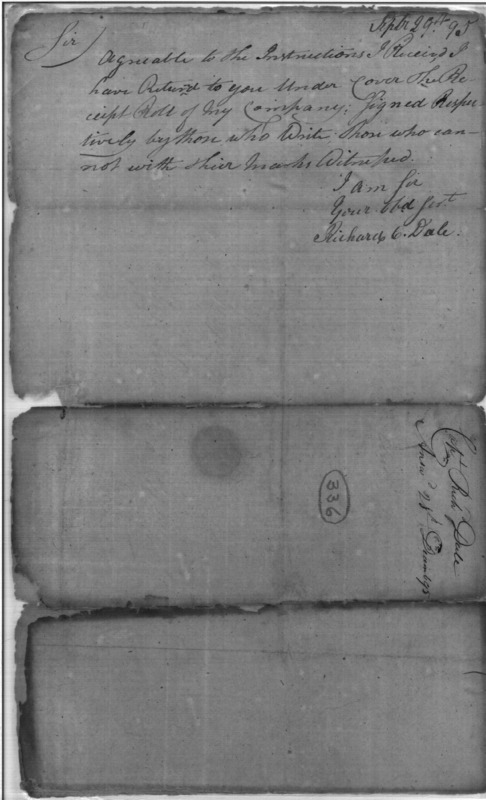 Septbr 29th 95
Sir
Agreeable to the Instructions I Receivd I
have Returnd to you Under Cover The Re-
ceipt Roll of My Company; Signed Respec-
tively by those who Write Those who can-
not with thier Marks Witnessed.
I am Sir
Your Obd Servt
Richard C. Dale.
336
Capt Richd Dale
Answd